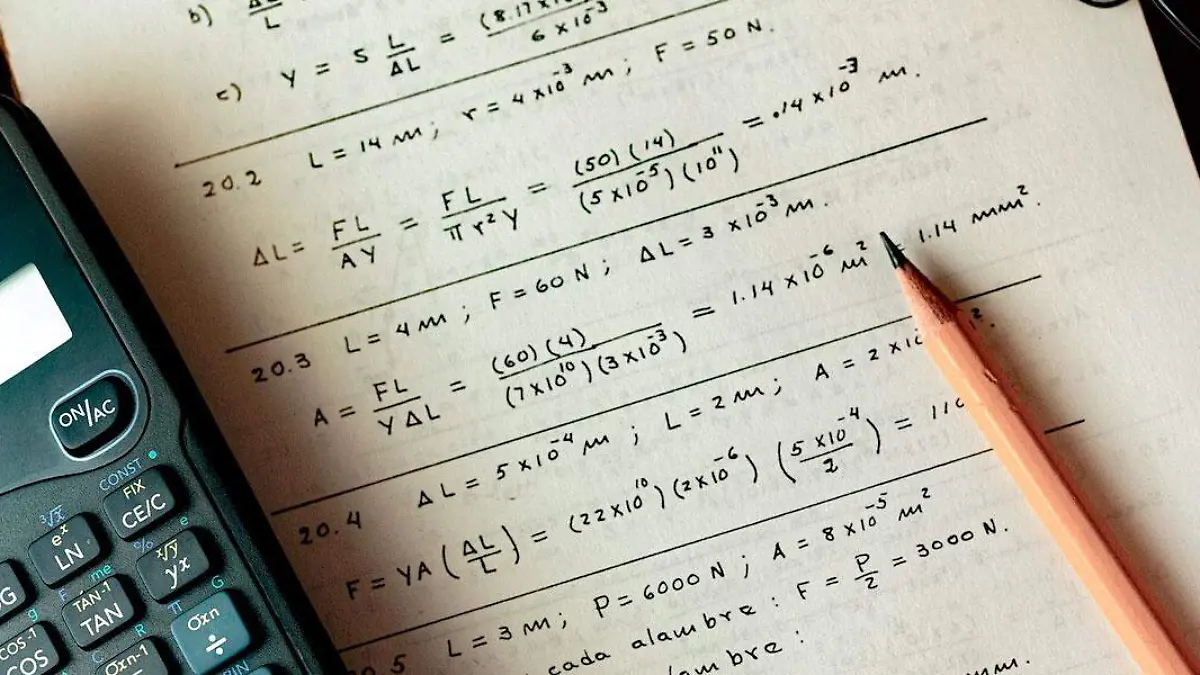 b) ΔL/L
c) Y = S L/ΔL = (8.17×10 / 6×10⁻³
20.2 L = 14 m ; r = 4×10⁻³ m ; F = 50 N.
ΔL = FL/AY = FL/πr²Y = (50)(14)/(5×10⁻⁵)(10¹¹) = .14×10⁻³ m.
20.3 L = 4 m ; F = 60 N ; ΔL = 3×10⁻³ m.
A = FL/YΔL = (60)(4)/(7×10¹⁰)(3×10⁻³) = 1.14×10⁻⁶ m² = 1.14 mm².
20.4 ΔL = 5×10⁻⁴ m ; L = 2 m ; A = 2×10 ².
F = YA(ΔL/L) = (22×10¹⁰)(2×10⁻⁶)(5×10⁻⁴/2) = 110
0.5 L = 3 m ; P = 6000 N ; A = 8×10⁻⁵ m²
cada alambre : F = P/2 = 3000 N.
lambre :
mm.
ON/AC
CONST
FIX
CE/C
³√x
eˣ
LN
%
e
ˣ√y
yx
OG
g
F
me
TAN-1
TAN
π
G
σxn
÷
COS-1
COS
R
C
σxn-1
RIN